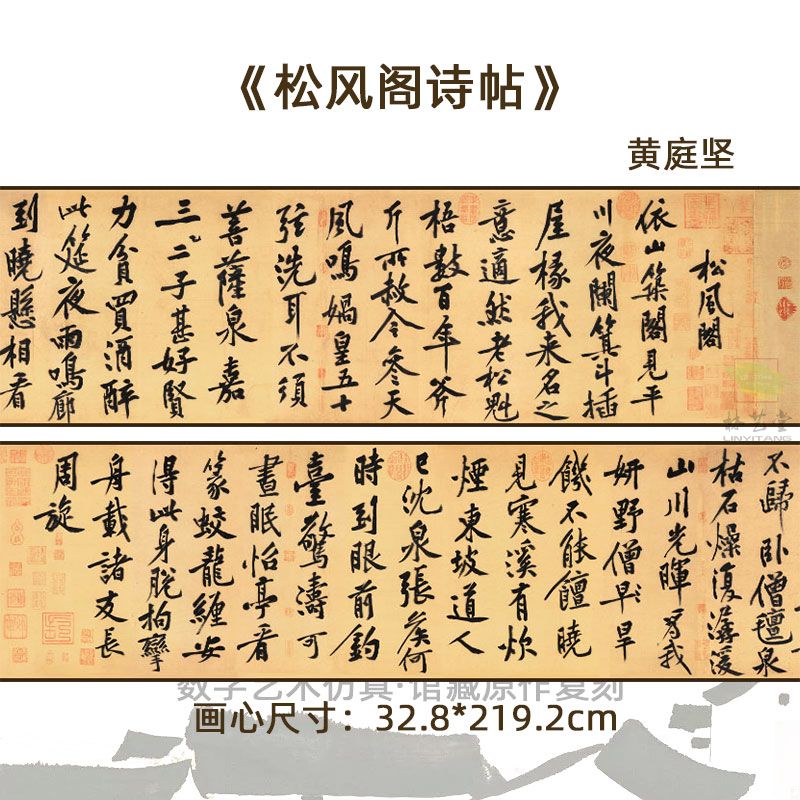 《松风阁诗帖》
黄庭坚
松風閣
依山築閣見平
川夜闌箕斗插
屋椽我来名之
意適然老松魁
梧數百年斧
斤所赦今參天
風鳴媧皇五十
弦洗耳不須
菩薩泉嘉
三二子甚好賢
力貧買酒醉
此筵夜雨鳴廊
到曉懸相看
林艺堂
LINYITANG
不歸臥僧氈泉
枯石燥復潺湲
山川光暉為我
妍野僧早旱
饑不能饘曉
見寒溪有炊
煙東坡道人
已沈泉張侯何
時到眼前釣
臺驚濤可
晝眠怡亭看
篆蛟龍纏安
得此身脫拘攣
舟載諸友長
周旋
数字艺术仿真·馆藏原作复刻
画心尺寸：32.8*219.2cm